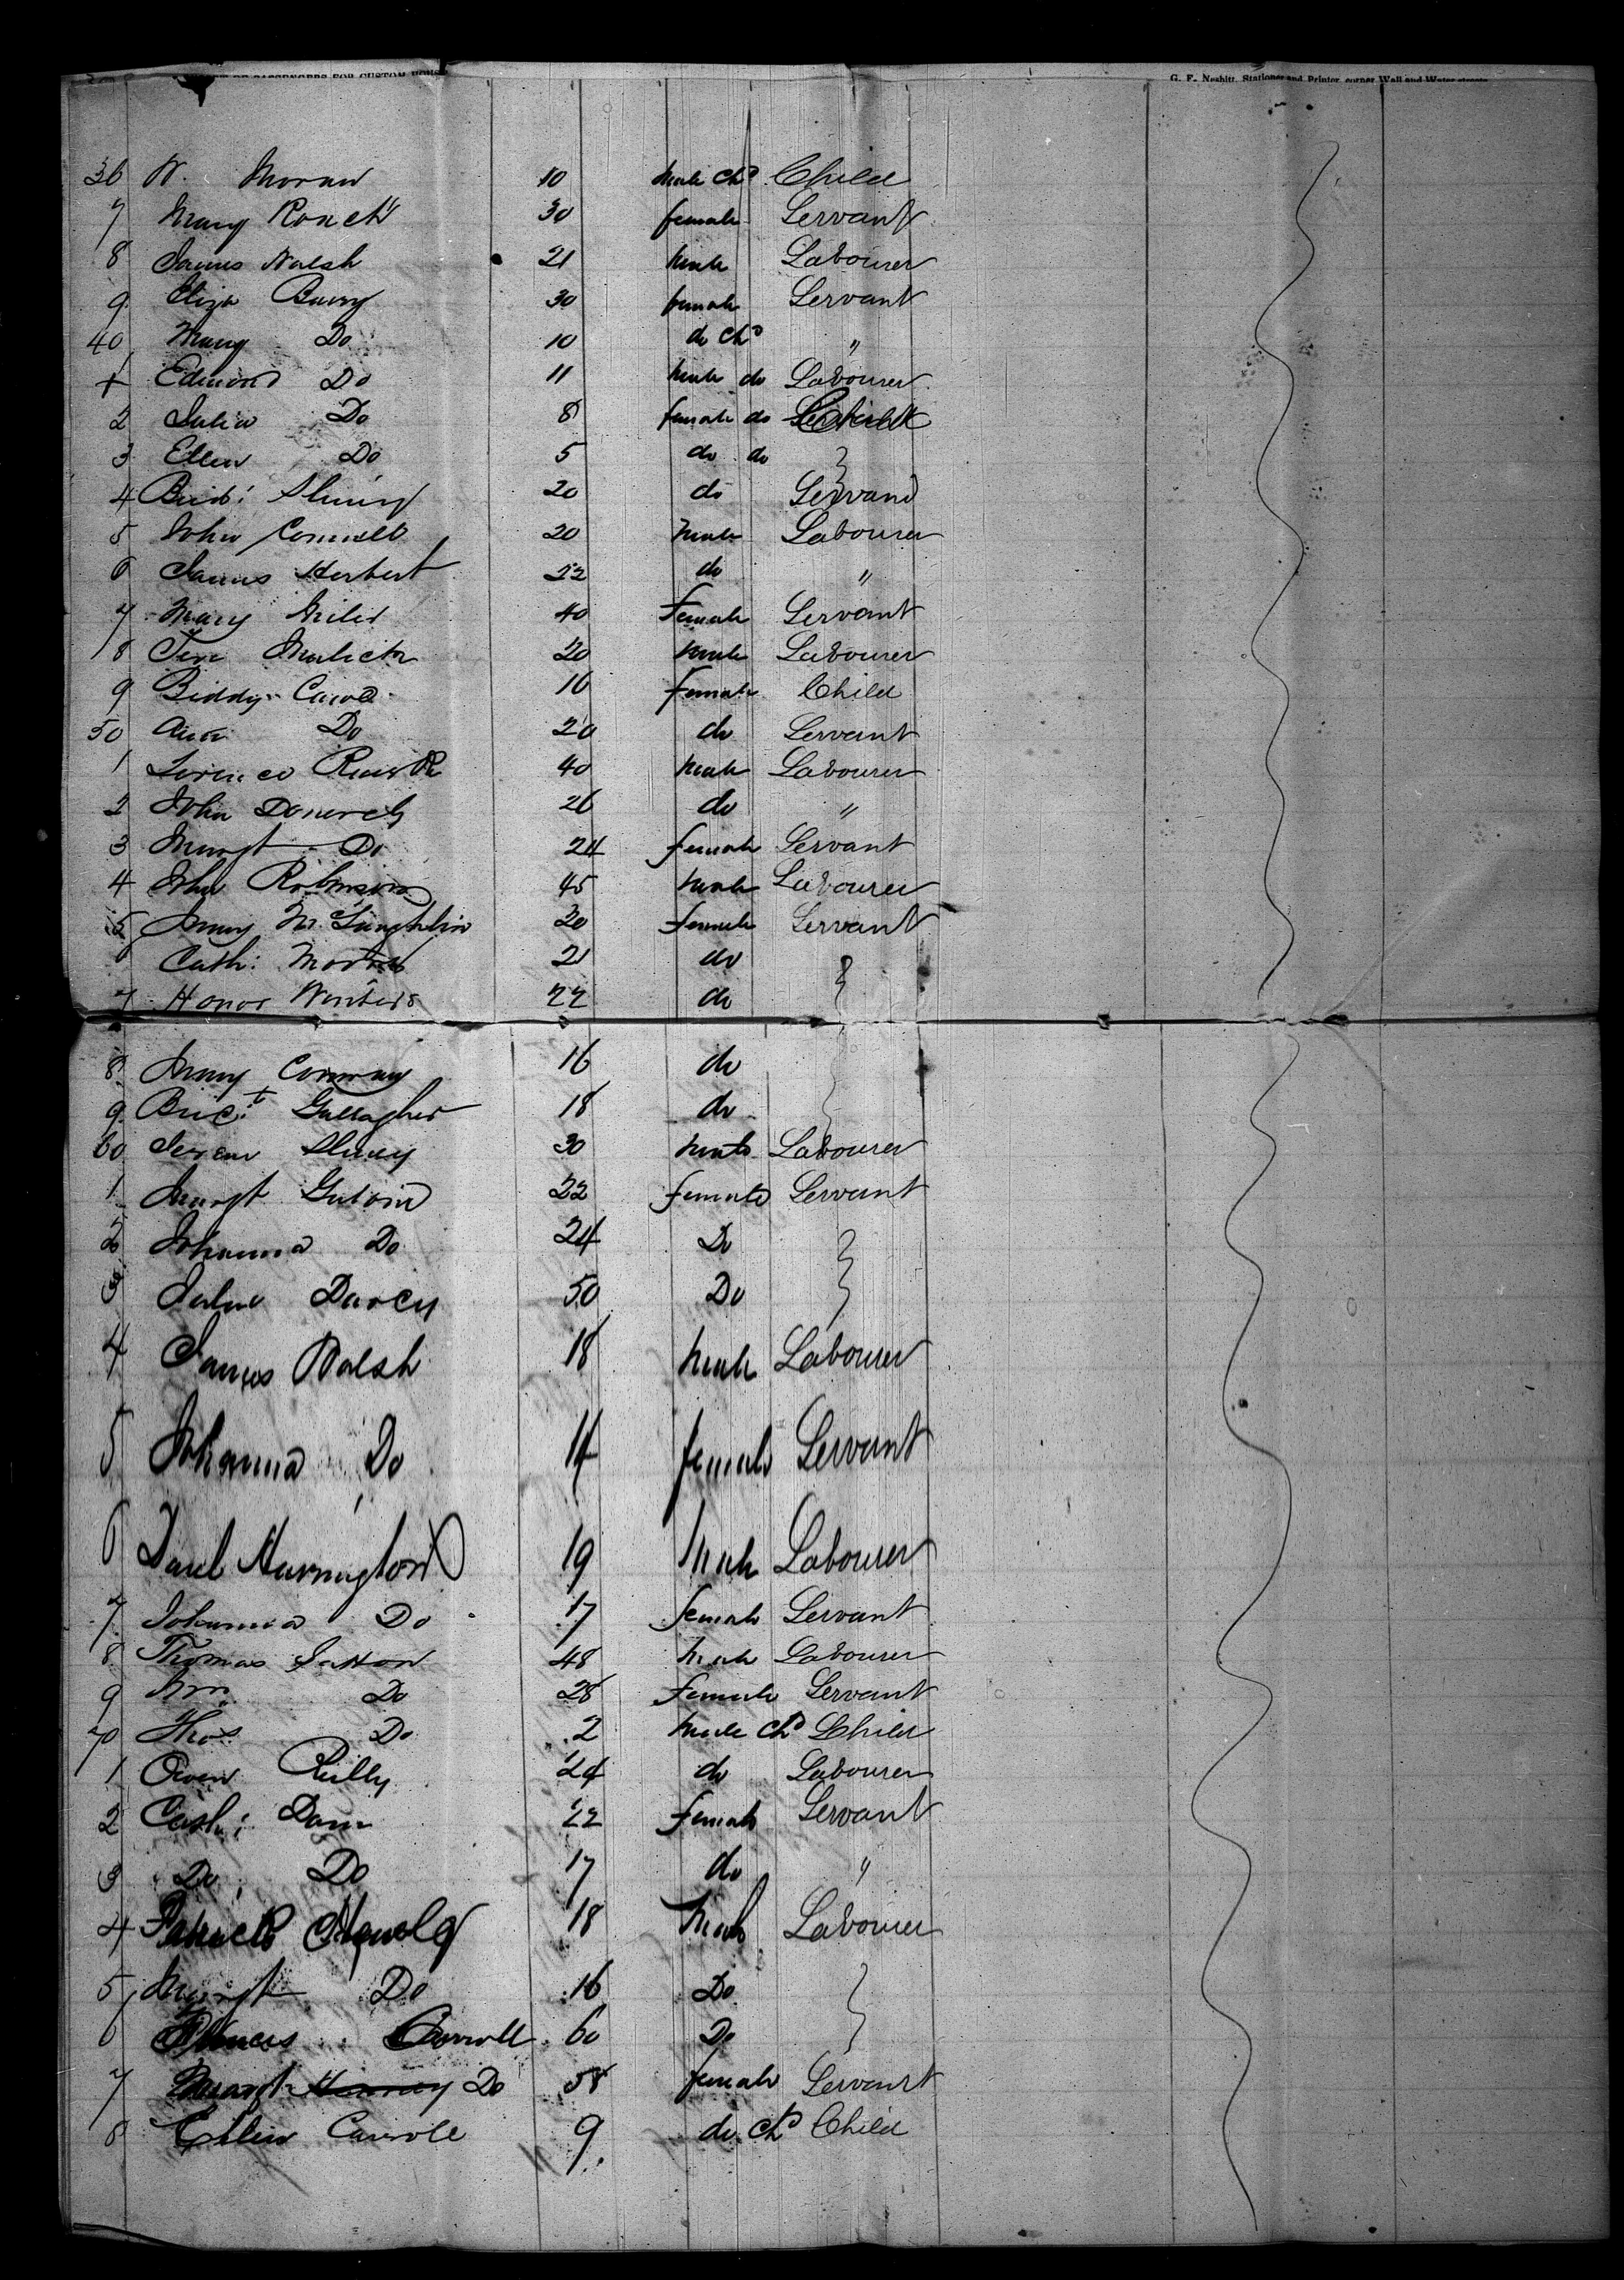 PASSENGERS FOR CUSTOM HOUSE
G. F. Nesbitt, Stationer and Printer, corner Wall and Water streets
36 W. Moran 10 male chd Child
7 Mary Roach 30 female Servant
8 James Walsh 21 male Labourer
9 Eliza Barry 30 female Servant
40 Mary Do 10 do chd "
1 Edmond Do 11 male do Labourer
2 Julia Do 8 female do Child
3 Ellen Do 5 do do
4 20 do Servand
5 John 20 male Labourer
6 James Herbert 22 do "
7 Mary 40 Female Servant
8 20 male Labourer
9 Biddy 16 Female Child
50 Ann Do 20 do Servant
1 40 male Labourer
2 John 26 do "
3 Margt Do 24 female Servant
4 John Robinson 45 male Labourer
5 Mary McLaughlin 20 Female Servant
6 Cath: 21 do
7 Honor Winters 22 do
8 Mary Conway 16 do
9 Gallagher 18 do
60 30 male Labourer
1 Margt Galvin 22 female Servant
2 Johanna Do 24 Do
3 Darcy 50 Do
4 James Walsh 18 male Labourer
5 Johanna Do 14 female Servant
6 Danl Harrington 19 male Labourer
7 Johanna Do 17 female Servant
8 Thomas 48 male Labourer
9 Mrs Do 28 Female Servant
70 Thos Do 2 male chd Child
1 Owen Reilly 24 do Labourer
2 Cath: 22 female Servant
3 Do Do 17 do "
4 Patrick 18 male Labourer
5 Margt Do 16 Do
6 Carroll 60 Do
7 Margt Do 58 female Servant
8 Ellen Carroll 9 do chd Child